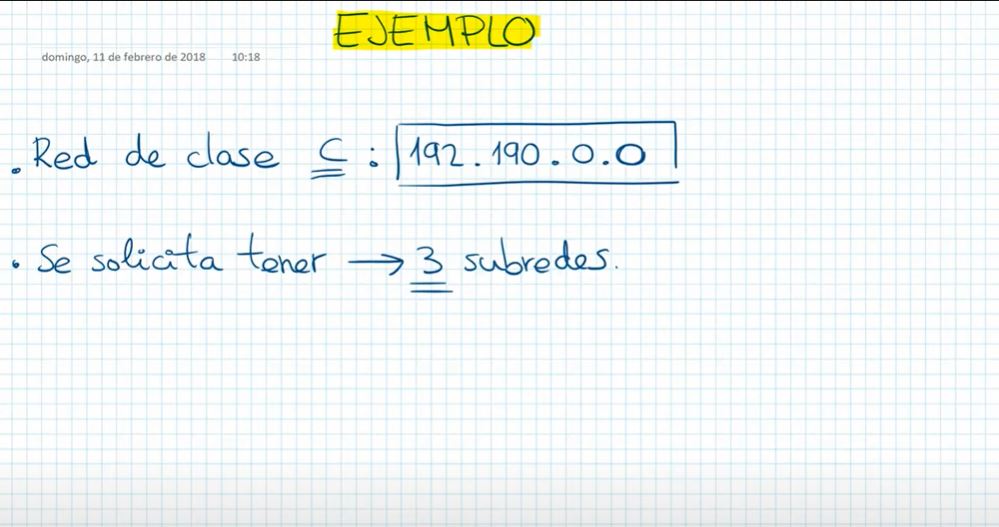 EJEMPLO
domingo, 11 de febrero de 2018 10:18
. Red de clase C : 192.190.0.0
. Se solicita tener → 3 subredes.